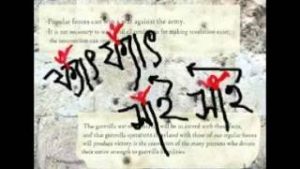 Popular forces can a war against the army.
It is not necessary to for making revolution exist;
the insurrection can
ফ্যাঁৎ ফ্যাঁৎ
সাঁই সাঁই
The guerrilla will be
and that guerrilla operations with those of our regular forces
will produce victory is the of the many persons who devote
their entire strength to guerrilla